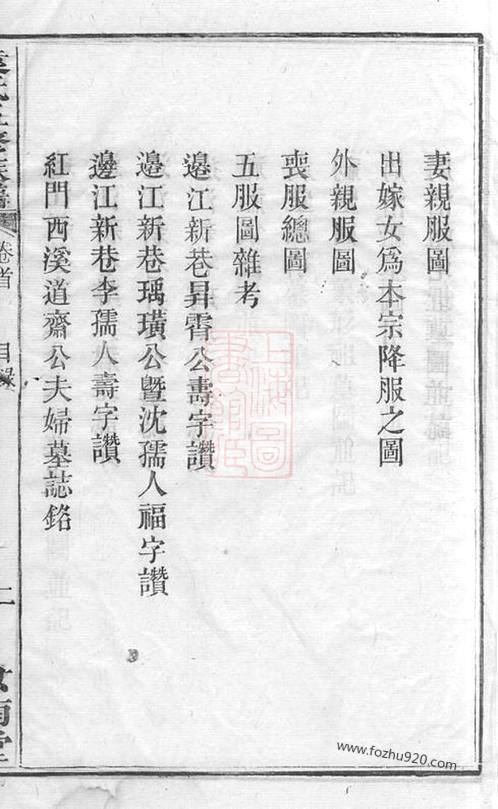 妻親服圖
出嫁女爲本宗降服之圖
外親服圖
喪服總圖
五服圖雜考
邊江新巷昇霄公壽字讚
邊江新巷瑀璜公曁沈孺人福字讚
邊江新巷李孺人壽字讚
紅門西溪道齋公夫婦墓誌銘
卷首 目錄
上海圖書館藏
www.fozhu920.com